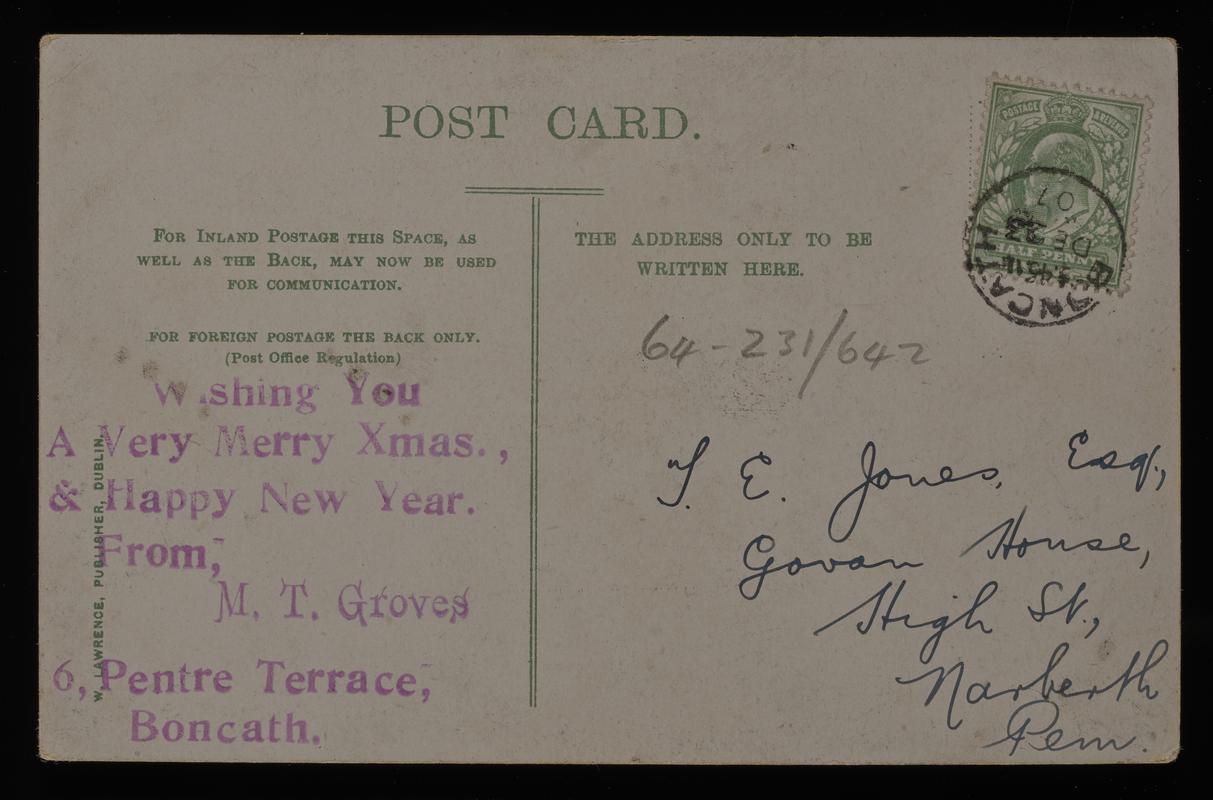 POST CARD.
POSTAGE & REVENUE
HALF PENNY
BONCATH
DE 23
07
FOR INLAND POSTAGE THIS SPACE, AS
WELL AS THE BACK, MAY NOW BE USED
FOR COMMUNICATION.
FOR FOREIGN POSTAGE THE BACK ONLY.
(Post Office Regulation)
Wishing You
A Very Merry Xmas.,
& Happy New Year.
From,
M. T. Groves
6, Pentre Terrace,
Boncath.
W. LAWRENCE, PUBLISHER, DUBLIN.
THE ADDRESS ONLY TO BE
WRITTEN HERE.
64-231/642
T. E. Jones, Esq.,
Govan House,
High St.,
Narberth
Pem.